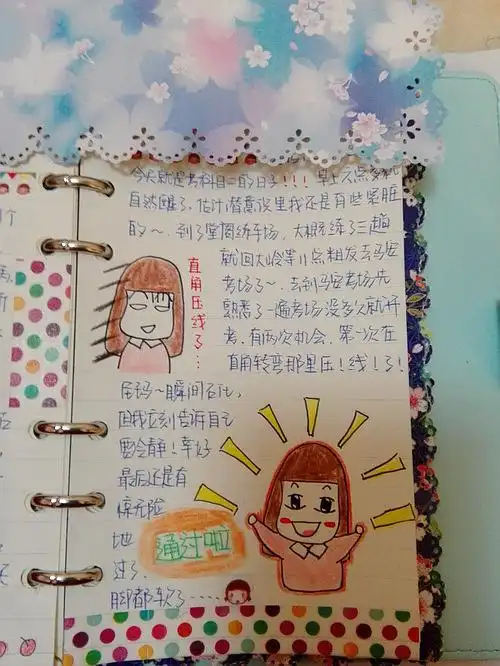 今天就是考科目二的日子!!! 早上六点多就
自然醒了,估计潜意识里我还是有些紧脏
的~、到了堂阁练车场,大概练了三趟
就回大哈等11点粗发去马安
考场了~、去到马安考场先
熟悉了一遍考场没多久就开
考,有两次机会,第一次在
直角转弯那里压!线!了!
直角压线了...
尼玛~瞬间石化,
但我立刻告诉自己
要冷静!幸好
最后还是有
惊无险
地
过了、
通过啦
脚都软了......
个